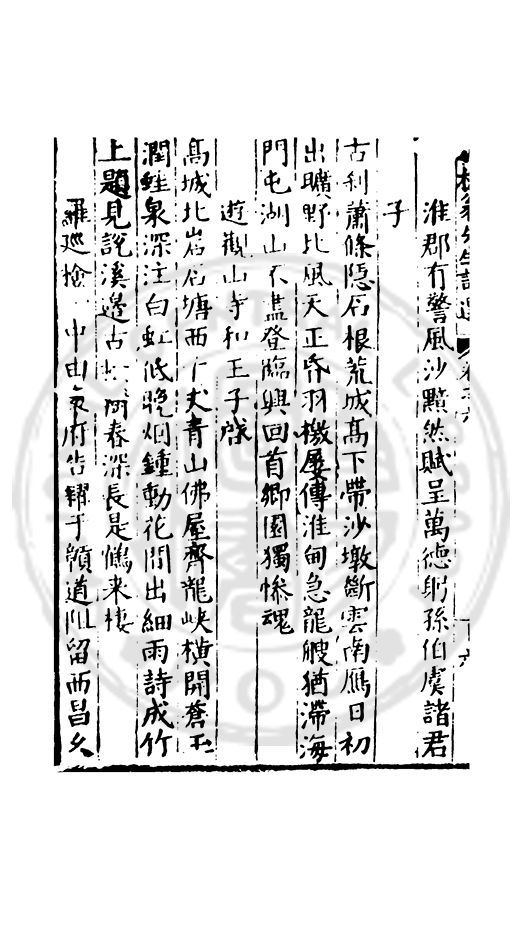 淮郡有警風沙黯然賦呈萬德躬孫伯虞諸君
子
古刹蕭條隱石根荒城高下帶沙墩斷雲南鴈日初
出曠野北風天正昏羽檄屢傳淮甸急龍艘猶滯海
門屯湖山不盡登臨興回首鄉園獨慘魂
遊觀山寺和王子啓
高城北岩石塘西丈青山佛屋齊龍峽橫開蒼玉
澗蛙泉深注白虹低晚烟鍾動花間出細雨詩成竹
上題見說溪邊古春深長是鶴来棲
羅廵檢中由府告糴于贛道阻留西昌久